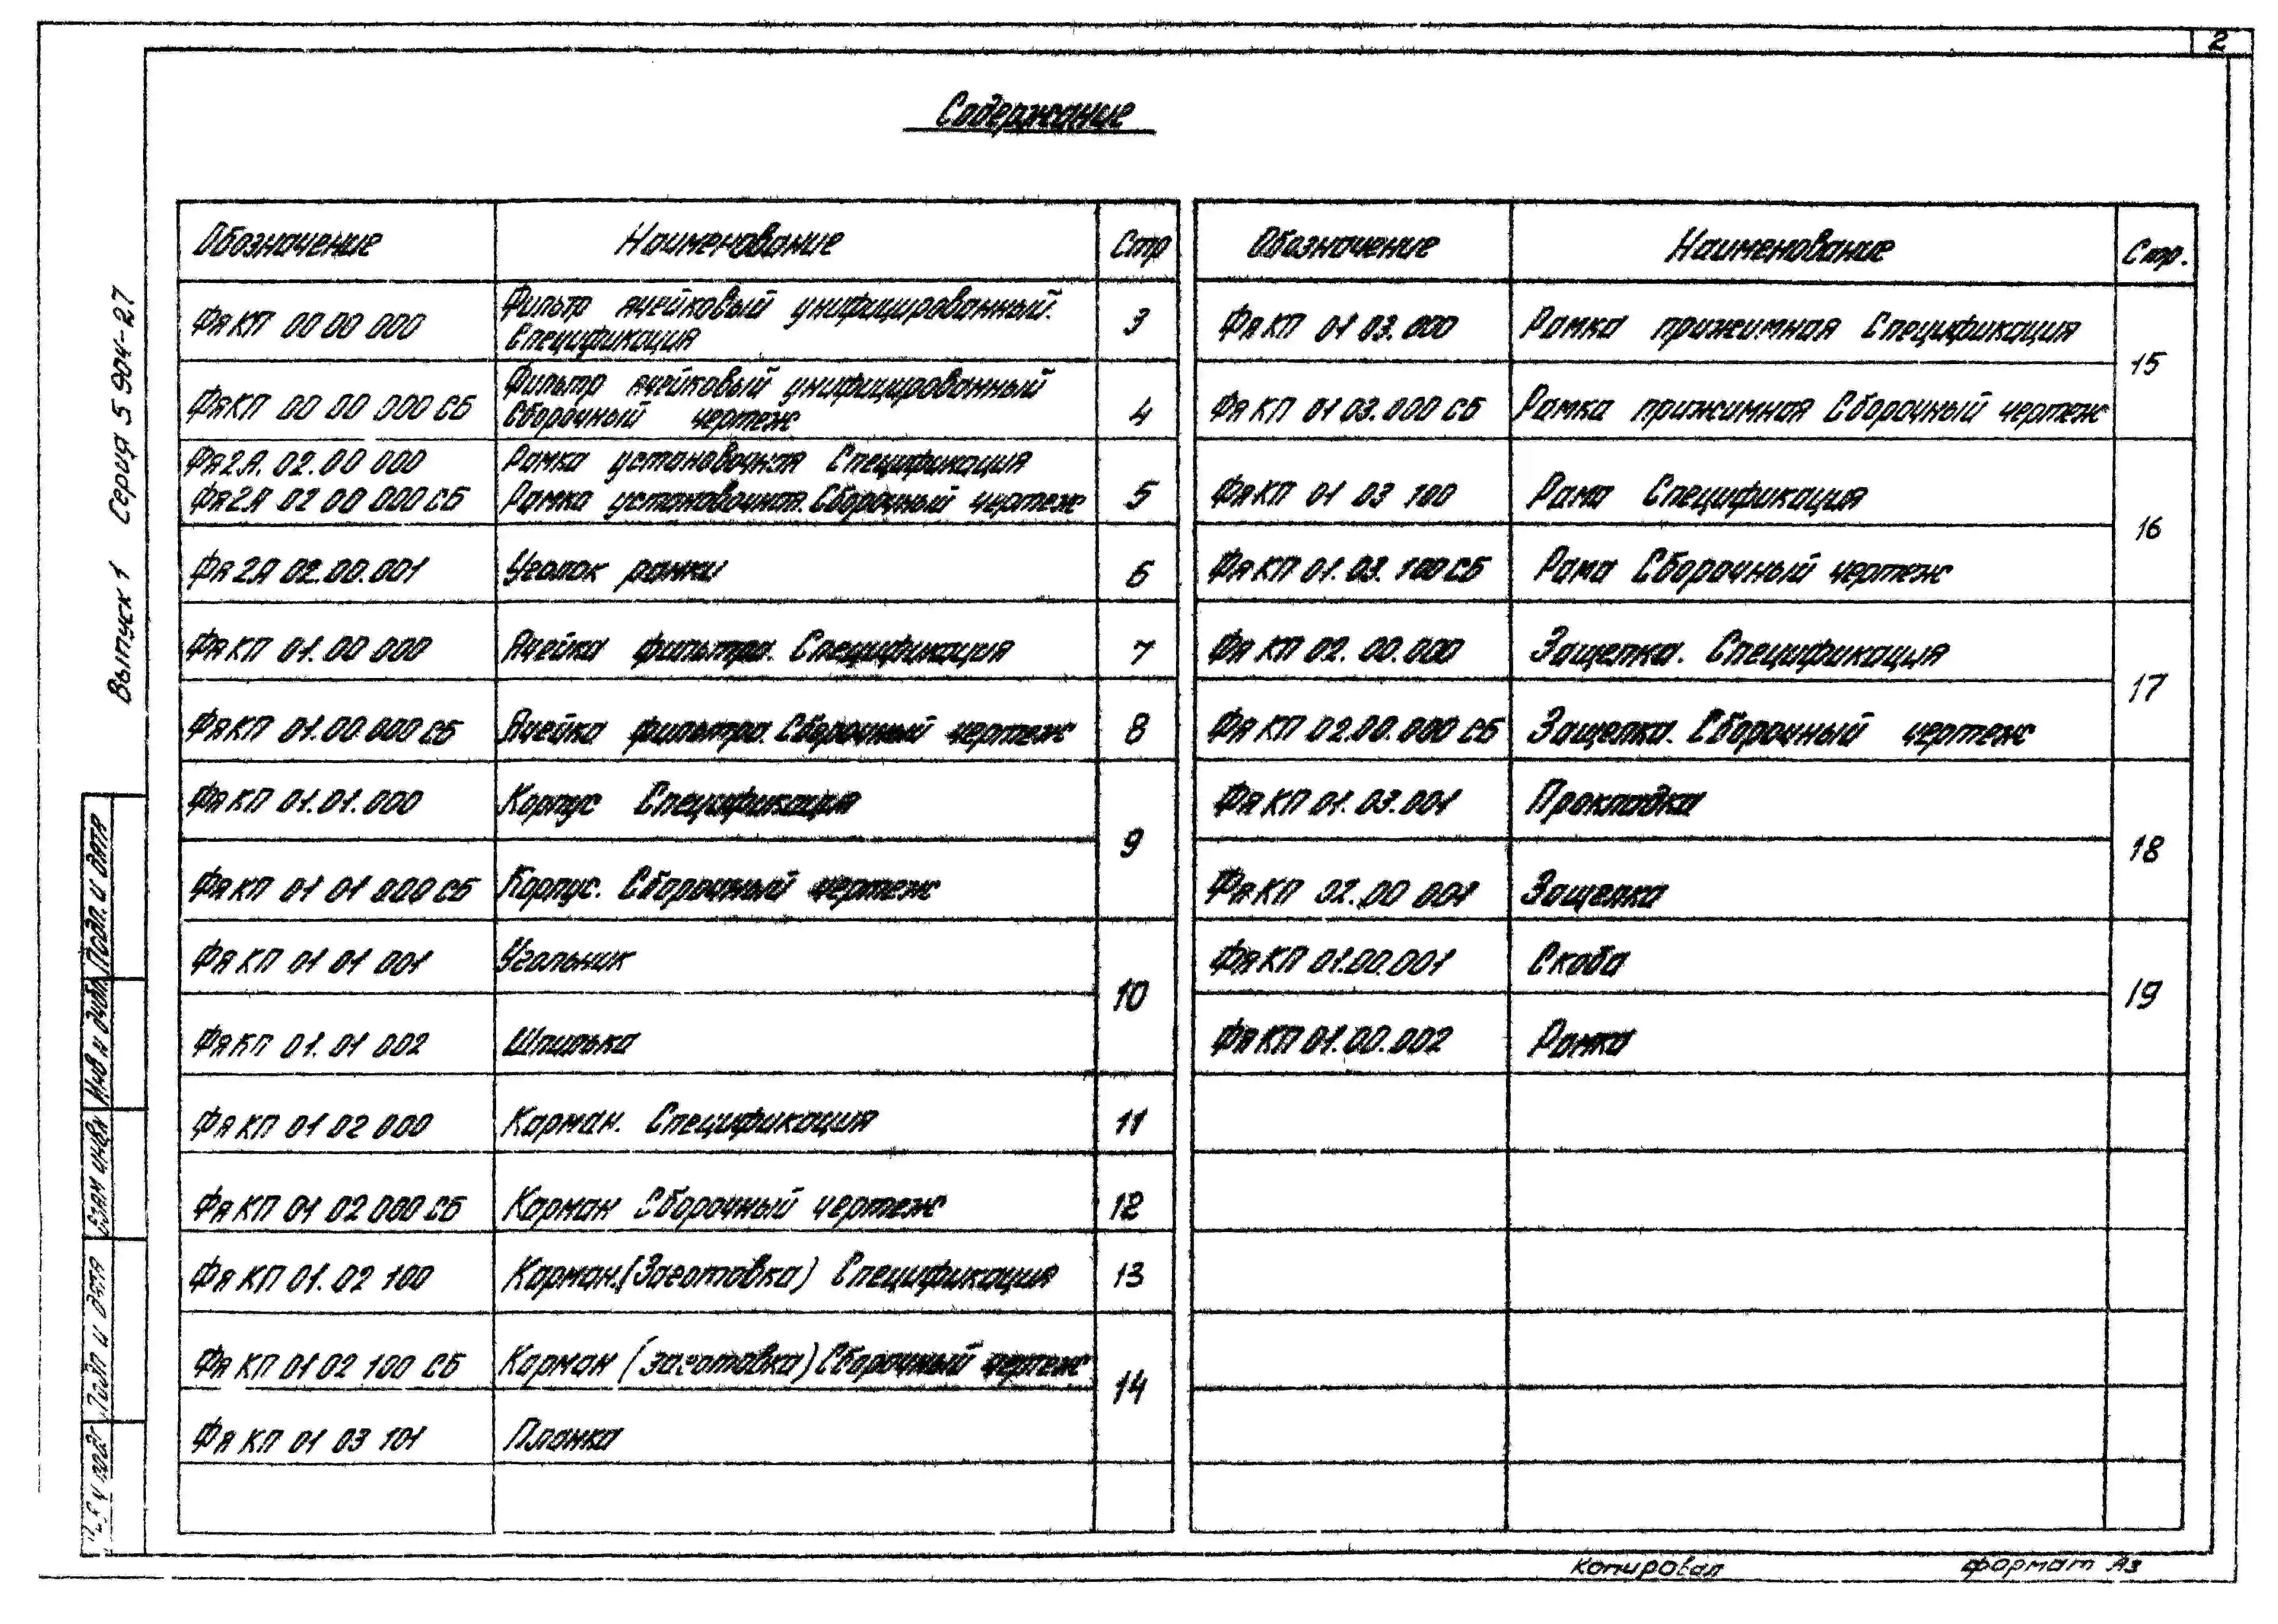 2
Содержание
Обозначение Наименование Стр
ФяКП 00 00 000 Фильтр ячейковый унифицированный. 3
Спецификация
ФяКП 00 00 000 СБ Фильтр ячейковый унифицированный 4
Сборочный чертеж
Фя2А. 02. 00 000 Рамка установочная Спецификация
Фя2А 02 00 000 СБ Рамка установочная. Сборочный чертеж 5
Фя2А 02.00.001 Уголок рамки 6
ФяКП 01.00 000 Ячейка фильтра. Спецификация 7
ФяКП 01.00.000 СБ Ячейка фильтра. Сборочный чертеж 8
ФяКП 01.01.000 Корпус Спецификация
9
ФяКП 01 01 000 СБ Корпус. Сборочный чертеж
ФяКП 01 01 001 Угольник
10
ФяКП 01. 01 002 Шпилька
ФяКП 01 02 000 Карман. Спецификация 11
ФяКП 01 02 000 СБ Карман Сборочный чертеж 12
ФяКП 01. 02 100 Карман.(Заготовка) Спецификация 13
ФяКП 01 02 100 СБ Карман (заготовка) Сборочный чертеж
14
ФяКП 01 03 101 Планка
Обозначение Наименование Стр.
ФяКП 01 03. 000 Рамка прижимная Спецификация
15
ФяКП 01 03.000 СБ Рамка прижимная Сборочный чертеж
ФяКП 01 03 100 Рама Спецификация
16
ФяКП 01. 03. 100 СБ Рама Сборочный чертеж
ФяКП 02. 00.000 Защелка. Спецификация
17
ФяКП 02.00.000 СБ Защелка. Сборочный чертеж
ФяКП 01. 03.001 Прокладка
18
ФяКП 02. 00 001 Защелка
ФяКП 01.00.001 Скоба
19
ФяКП 01.00.002 Рамка
Выпуск 1 Серия 5 904-27
Подп. и дата
Инв н дубл
Взам инв н
Подп и дата
Копировал формат А3